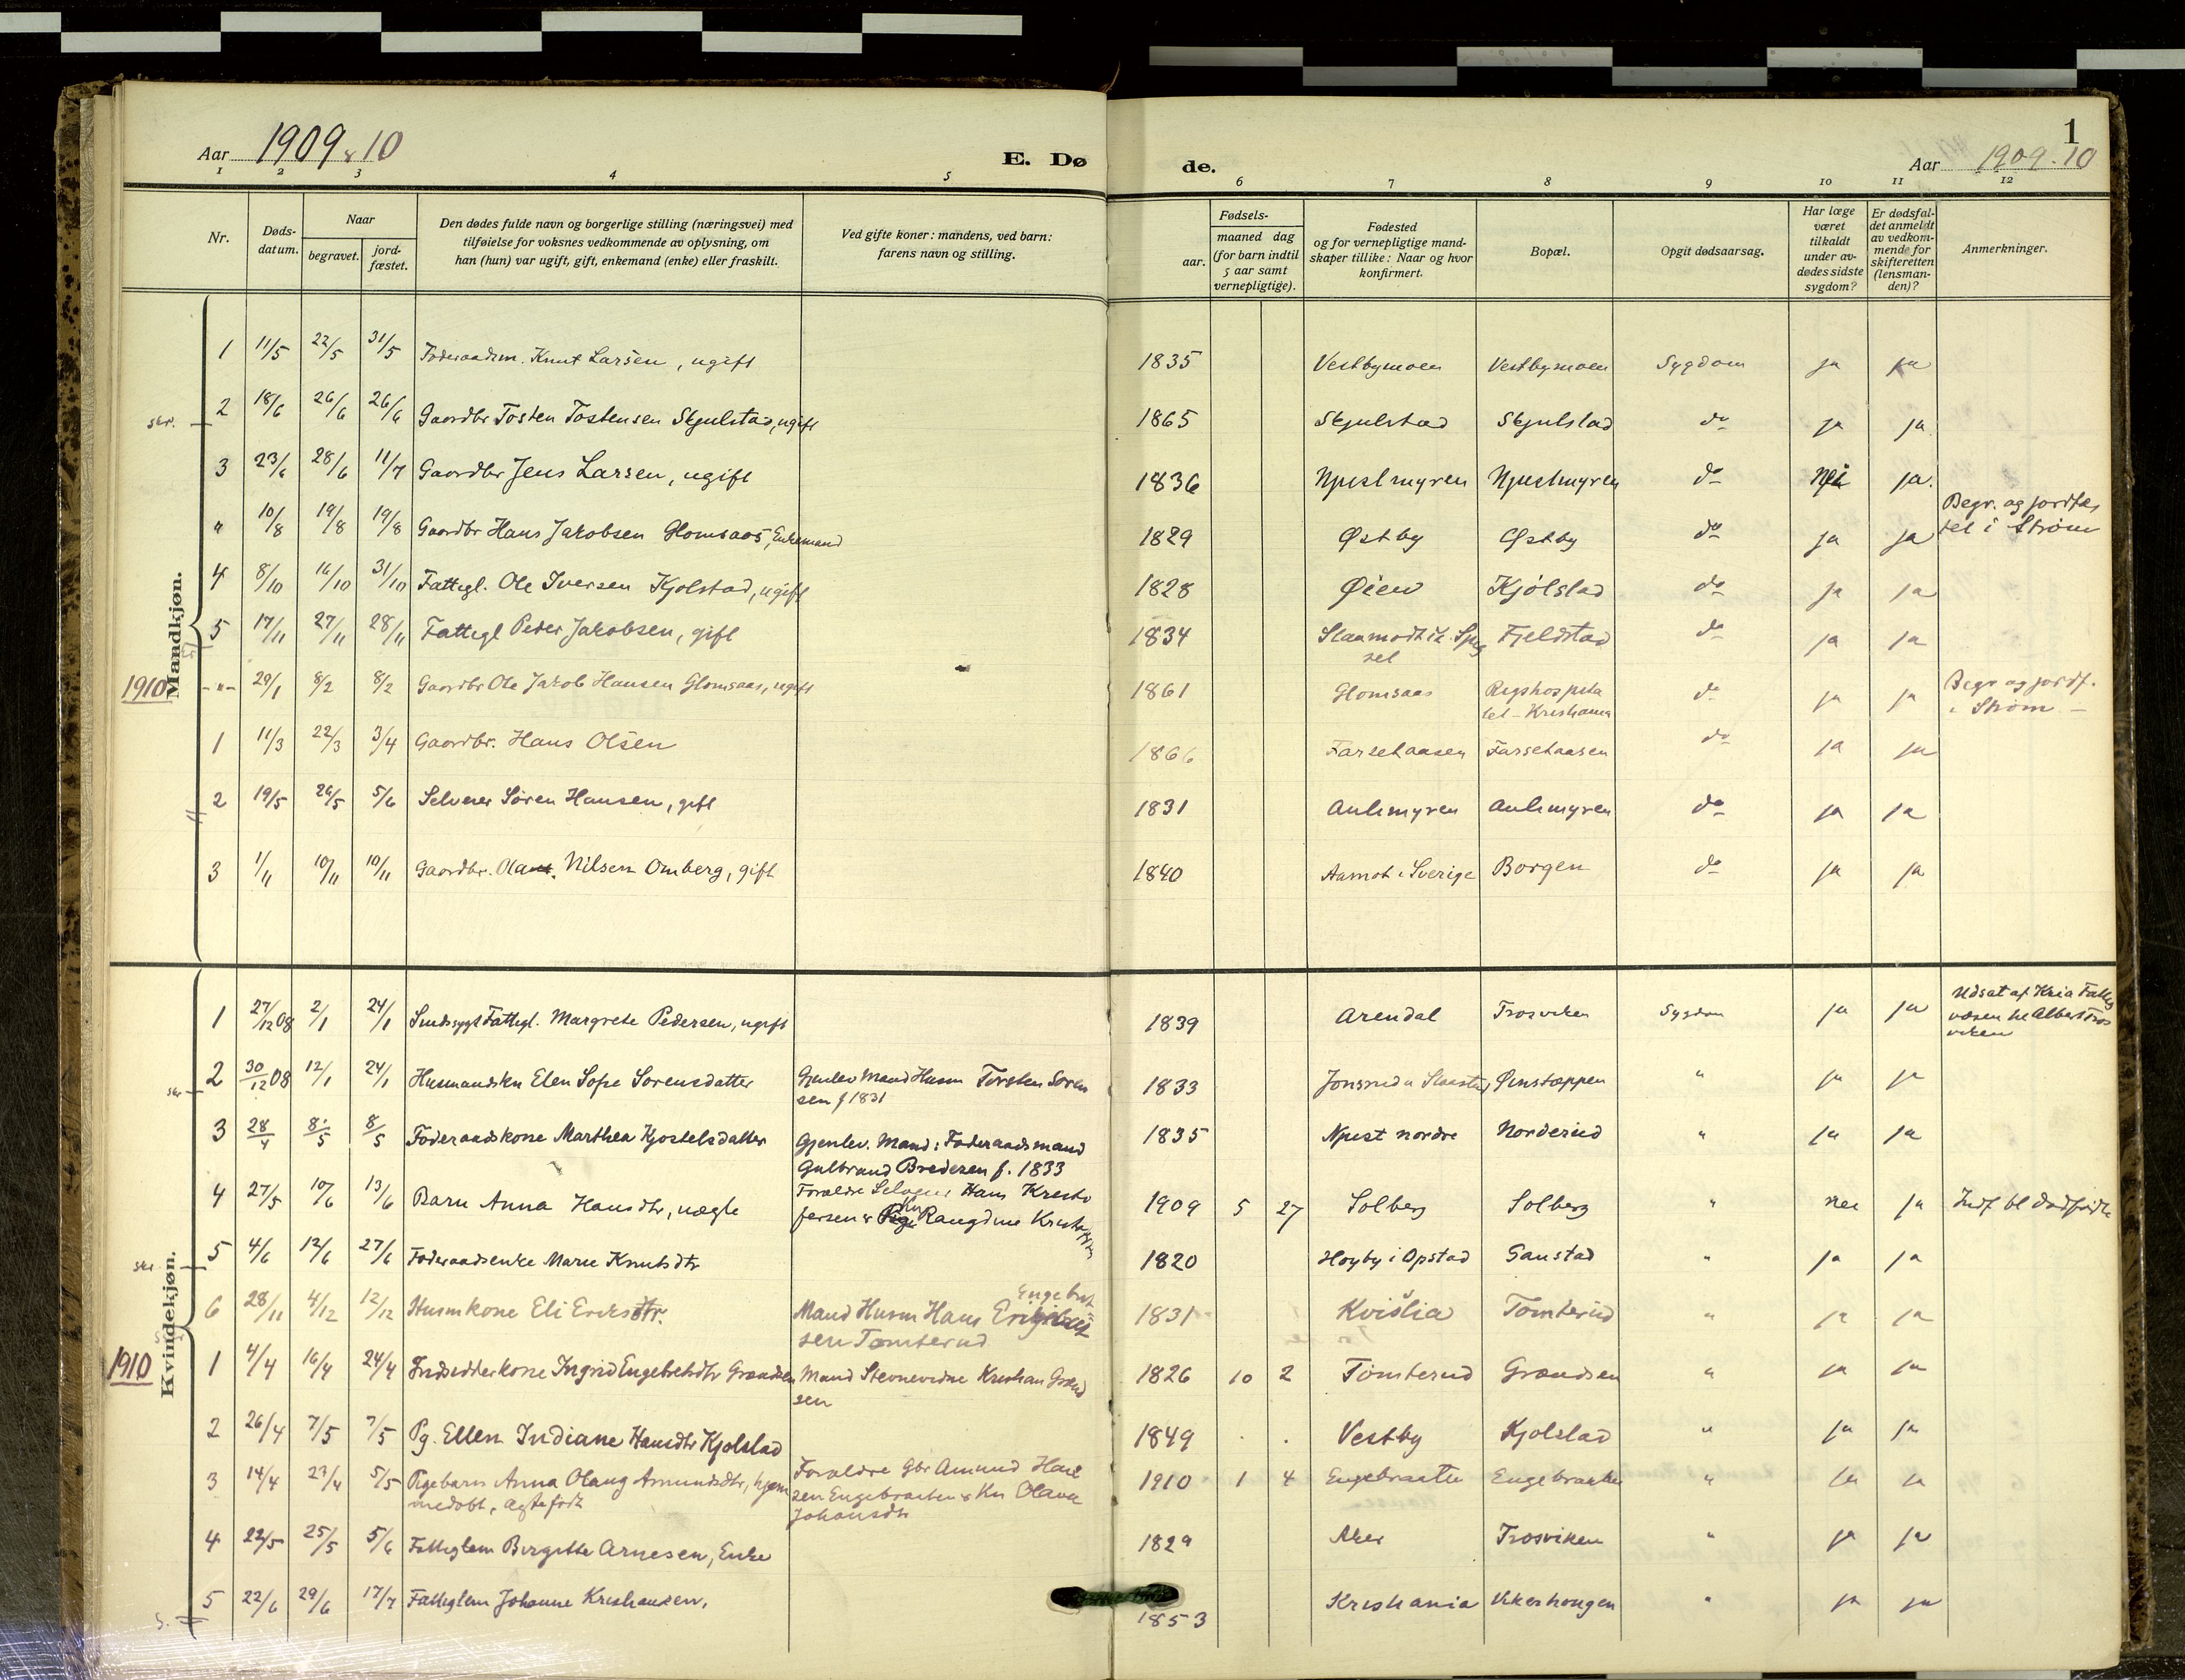 Aar 1909 & 10
E. Døde.
Aar 1909-10
1
1 2 3 4 5 6 7 8 9 10 11 12
Nr.
Døds-datum.
Naar
begravet.
jord-fæstet.
Den dødes fulde navn og borgerlige stilling (næringsvei) med
tilføielse for voksnes vedkommende av oplysning, om
han (hun) var ugift, gift, enkemand (enke) eller fraskilt.
Ved gifte koner: mandens, ved barn:
farens navn og stilling.
Fødsels-
aar.
maaned dag
(for barn indtil
5 aar samt
vernepligtige).
Fødested
og for vernepligtige mand-
skaper tillike: Naar og hvor
konfirmert.
Bopæl.
Opgit dødsaarsag.
Har læge
været
tilkaldt
under av-
dødes sidste
sygdom?
Er dødsfal-
det anmeldt
av vedkom-
mende for
skifteretten
(lensman-
den)?
Anmerkninger.
Mandkjøn.
1 11/5 22/5 31/5 Føderaadsm. Knut Larsen, ugift 1835 Vestbymoen Vestbymoen Sygdom ja ja
skr. 2 18/6 26/6 26/6 Gaardbr Tosten Tostensen Skjulstad, ugift 1865 Skjulstad Skjulstad do ja ja
3 23/6 28/6 11/7 Gaardbr Jens Larsen, ugift 1836 Njustmyren Njustmyren do Nei ja.
" 10/8 19/8 19/8 Gaardbr Hans Jakobsen Glomsaas, Enkemand 1829 Østby Østby do ja ja Begr. og jordfæs
tet i Strøm
4 8/10 16/10 31/10 Fattigl. Ole Iversen Kjølstad, ugift 1828 Øien Kjølstad do ja ja
5 17/11 27/11 28/11 Fattigl Peder Jakobsen, gift 1834 Fjeldstad do ja ja
1910 -"- 29/1 8/2 8/2 Gaardbr Ole Jakob Hansen Glomsaas, ugift 1861 Glomsaas Rigshospita
tet - Kristiania do ja ja Begr og jordf.
i Strøm -
1 11/3 22/3 3/4 Gaardbr. Hans Olsen 1866 Farsetaasen Farsetaasen do ja ja
2 19/5 26/5 5/6 Selveier Søren Hansen, gift 1831 Aulimyren Aulimyren do ja ja
3 1/11 10/11 10/11 Gaardbr. Nilsen Omberg, gift 1840 Aamot i Sverige Borgen do ja ja
Kvindekjøn.
1 27/12 08 2/1 24/1 Sindssygt Fattigl. Margrete Pedersen, ugift 1839 Arendal Trosviken Sygdom ja ja Udsat af Kria Fattig
væsen til Albert Tros
viken
skr 2 30/12 08 12/1 24/1 Husmandskn Elen Sofie Sørensdatter Gjenlev Mand Husm Torsten Søren
sen f 1831 1833 Ørnstoppen " ja ja
3 28/4 8/5 8/5 Føderaadskone Marthea Kjostelsdatter Gjenlev. Mand: Føderaadsmand
Gulbrand Bredesen f. 1833 1835 Njust nordre Norderud " ja ja
4 27/5 10/6 13/6 Barn Anna Hansdtr, uægte Forældre Selveier Hans Kristo
fersen & Rangdine 1909 5 27 Solberg Solberg " nei ja
skr 5 4/6 12/6 27/6 Føderaadsenke Marie Knutsdtr 1820 Høyby i Opstad Gaustad " ja ja
6 28/11 4/12 12/12 Husmkone Eli Eriksdtr. Mand Husm Hans Engebret
sen Tomterud 1831 Kvislia Tomterud " ja ja
1910 1 4/4 16/4 24/4 Indsidderkone Ingrid Engebretsdtr Grændsen Mand Stevnevidne Kristian Grænd
sen 1826 10 2 Tomterud Grændsen " ja ja
2 26/4 7/5 7/5 Pg. Ellen Indiane Hansdtr Kjølstad 1849 . . Vestby Kjolstad " ja ja
3 14/4 23/4 5/5 Pigebarn Anna Olaug Amundsdtr, hjem
medøbt, ægtefødt Forældre Gbr Amund Han
sen Engebraaten & Kn Olava
Johansdtr 1910 1 4 Engebraaten Engebraaten " ja ja
4 22/5 25/5 5/6 Fattiglem Birgitte Arnesen, Enke 1829 Aker Trosviken " ja ja
5 22/6 29/6 17/7 Fattiglem Johanne Kristiansen. 1853 Kristiania Vikerhaugen " ja ja